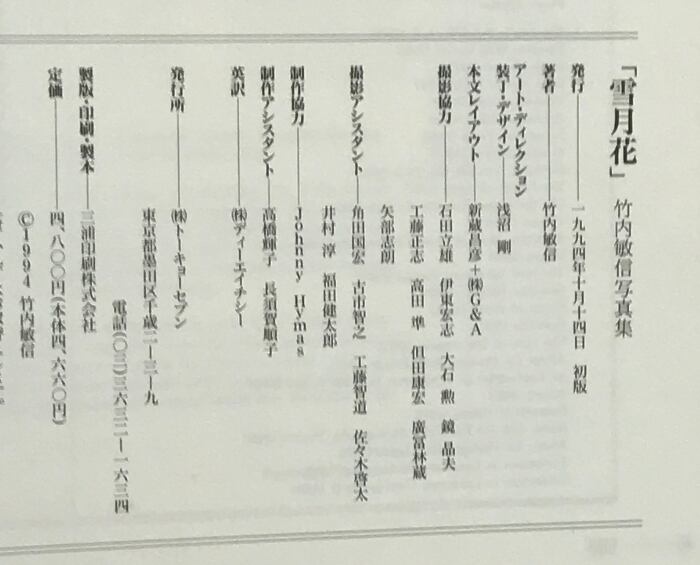 「雪月花」 竹内敏信写真集
発行――一九九四年十月十四日 初版
著者――竹内敏信
アート・ディレクション
装丁・デザイン――浅沼 剛
本文レイアウト――新蔵昌彦+㈱G&A
撮影協力――石田立雄 伊東宏志 大石 勲 鏡 晶夫
工藤正志 高田 準 但田康宏 廣冨林蔵
矢部志朗
撮影アシスタント――角田国宏 古市智之 工藤智道 佐々木啓太
井村 淳 福田健太郎
制作協力――Johnny Hymas
制作アシスタント――高橋輝子 長須賀順子
英訳――㈱ディーエイチシー
発行所――㈱トーキョーセブン
東京都墨田区千歳二―三―九
電話(〇三)三六三二―一六三四
製版・印刷・製本――三浦印刷株式会社
定価――四、八〇〇円(本体四、六六〇円)
©1994 竹内敏信